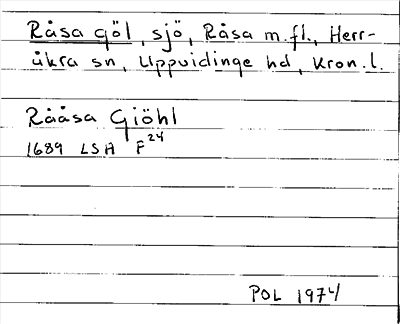 Råsa göl, sjö, Råsa m.fl., Herr-
åkra sn, Uppvidinge hd, Kron.l.
Rååsa Giöhl
1689 LSA F24
POL 1974